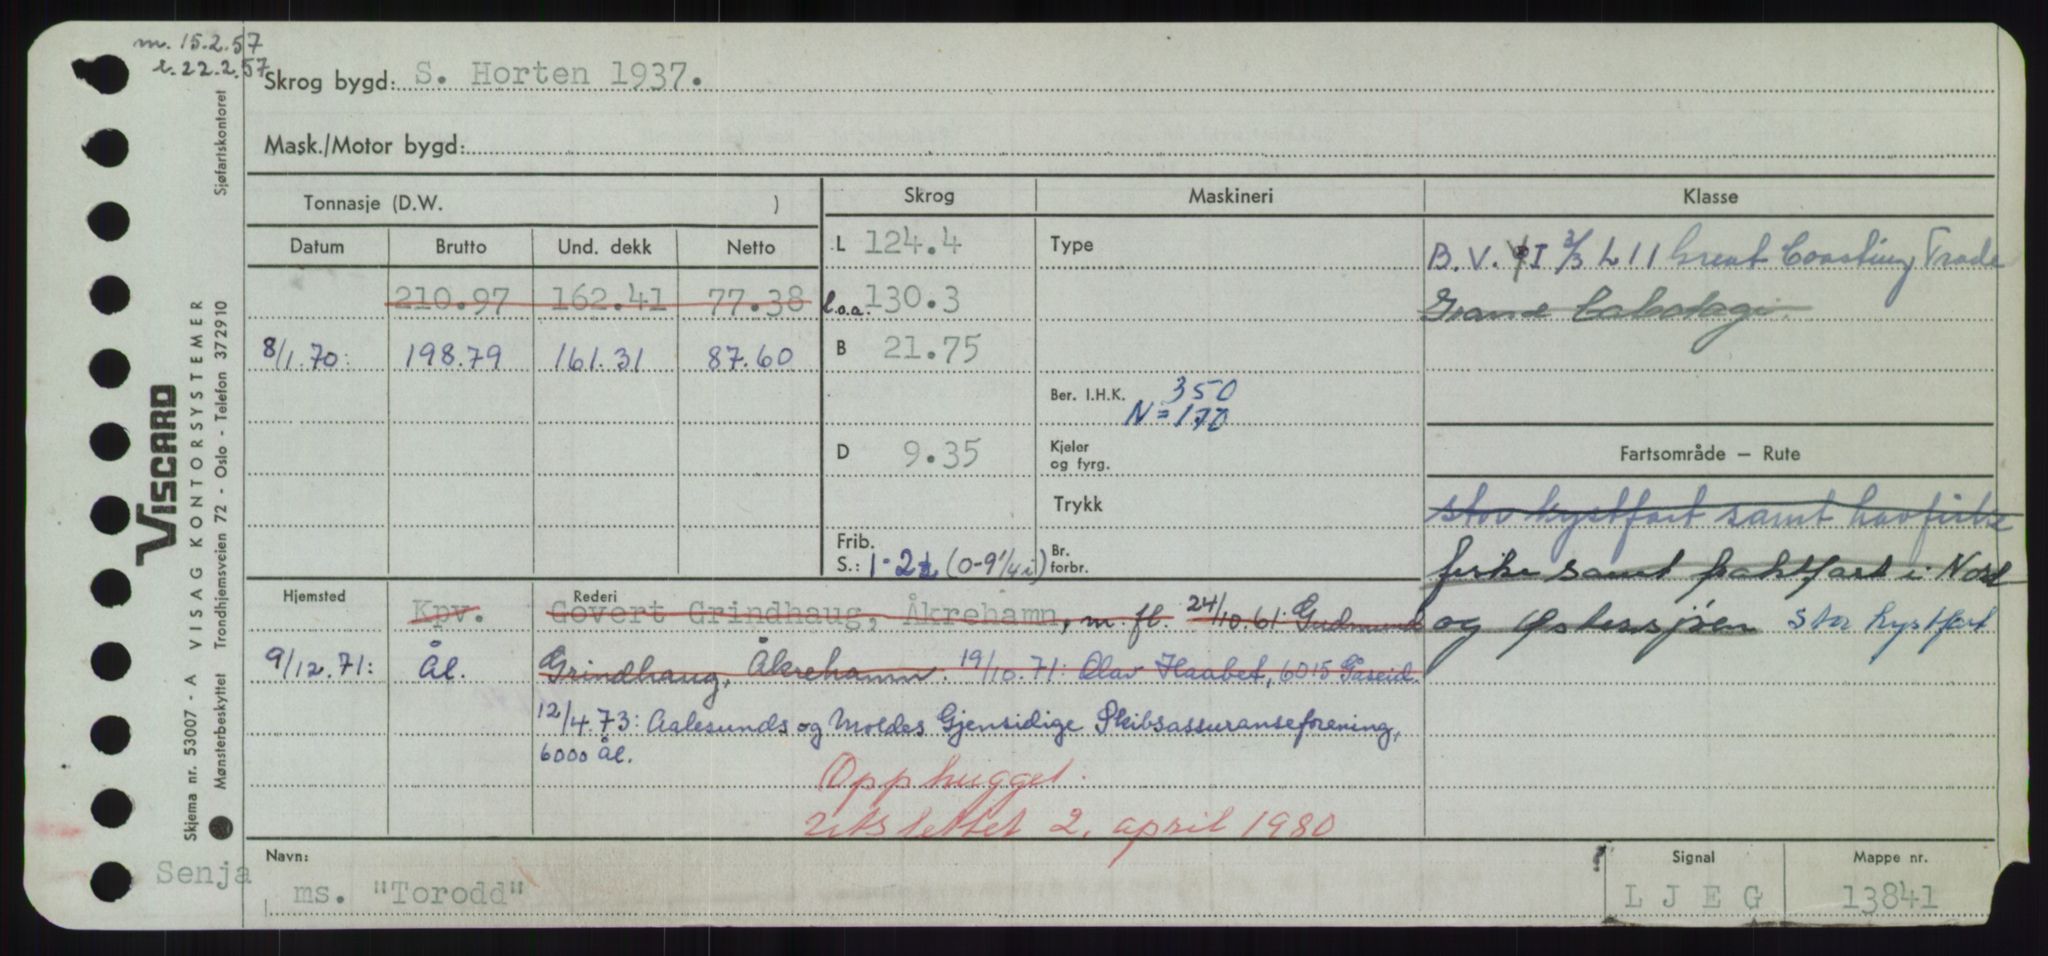 m. 15.2.57
r. 22.2.57
Skrog bygd: S. Horten 1937.
Mask./Motor bygd:
Tonnasje (D.W. )
Skrog
Maskineri
Klasse
Datum Brutto Und. dekk Netto
210.97 162.41 77.38
8/1.70: 198.79 161.31 87.60
L 124.4
l.o.a. 130.3
B 21.75
D 9.35
Frib. S.: 1-2½ (0-9¼ i)
Type
Ber. I.H.K. 350
N = 170
Kjeler og fyrg.
Trykk
Br. forbr.
B. V. I 3/3 L 1 1 Great Coasting Trade
Grand Cabotage
Fartsområde – Rute
stor kystfart samt havfiske
fiske samt fraktfart i Nord
og Østersjøen stor kystfart
Hjemsted
Rederi
Kpv. Govert Grindhaug, Åkrehamn, m. fl. 24/10.61: Gudmund
9/12.71: Ål. Grindhaug, Åkrehamn. 19/10.71: Olav Haabet, 6015 Gåseid.
12/4.73: Aalesunds og Moldes Gjensidige Skibsassuranseforening,
6000 Ål.
Opphugget.
Utslettet 2. april 1980
Navn:
Senja
ms. "Torodd"
Signal
L J E G
Mappe nr.
13841
VISCARD
VISAG KONTORSYSTEMER
Skjema nr. 53007 - A
Mønsterbeskyttet Trondhjemsveien 72 - Oslo - Telefon 372910 Sjøfartskontoret